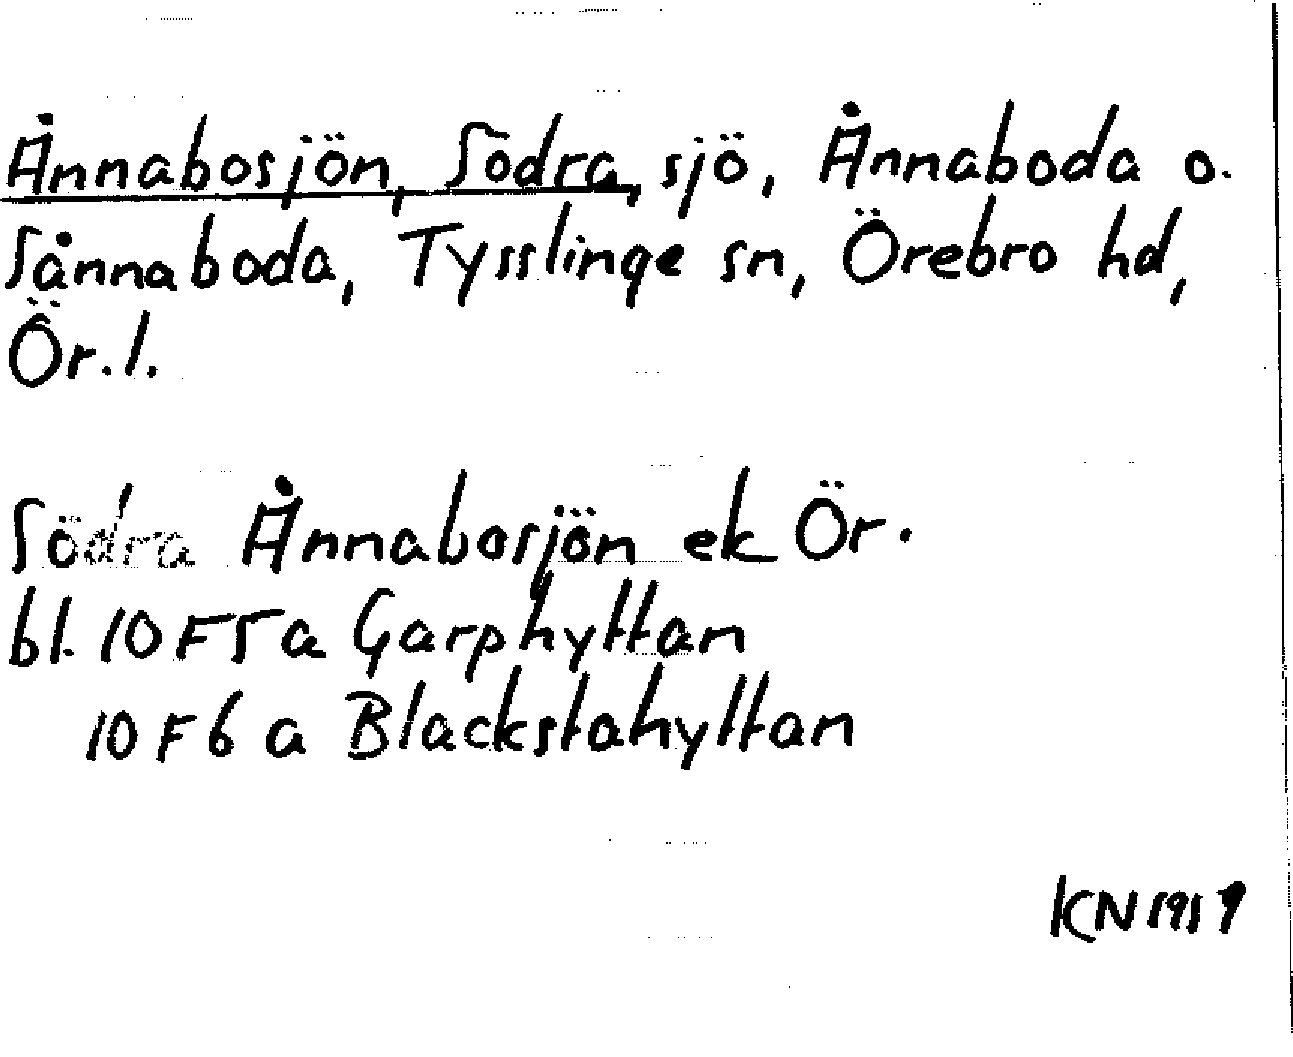 Ånnabosjön, Södra, sjö, Ånnaboda o.
Sånnaboda, Tysslinge sn, Örebro hd,
Ör. l.
Södra Ånnabosjön ek Ör.
bl. 10 F 5 a Garphyttan
10 F 6 a Blackstahyttan
KN